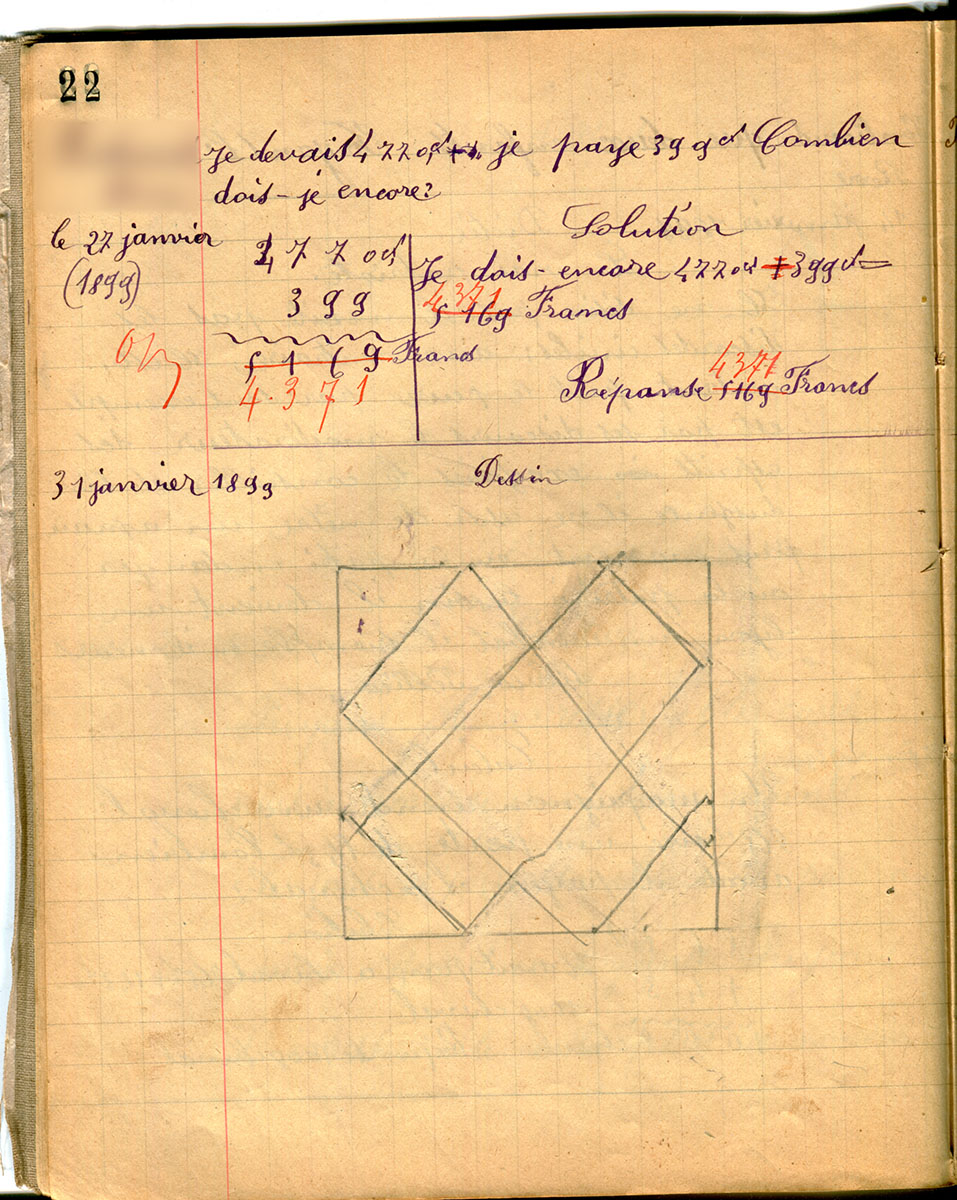 22
Je devais 4770d je paye 399d Combien
dois-je encore?
le 27 janvier
(1899)
Solution
4770d
399
5169 Francs
4.371
Je dois-encore 4770d - 399d =
4371
5169 Francs
4371
Réponse 5169 Francs
31 janvier 1899
Dessin